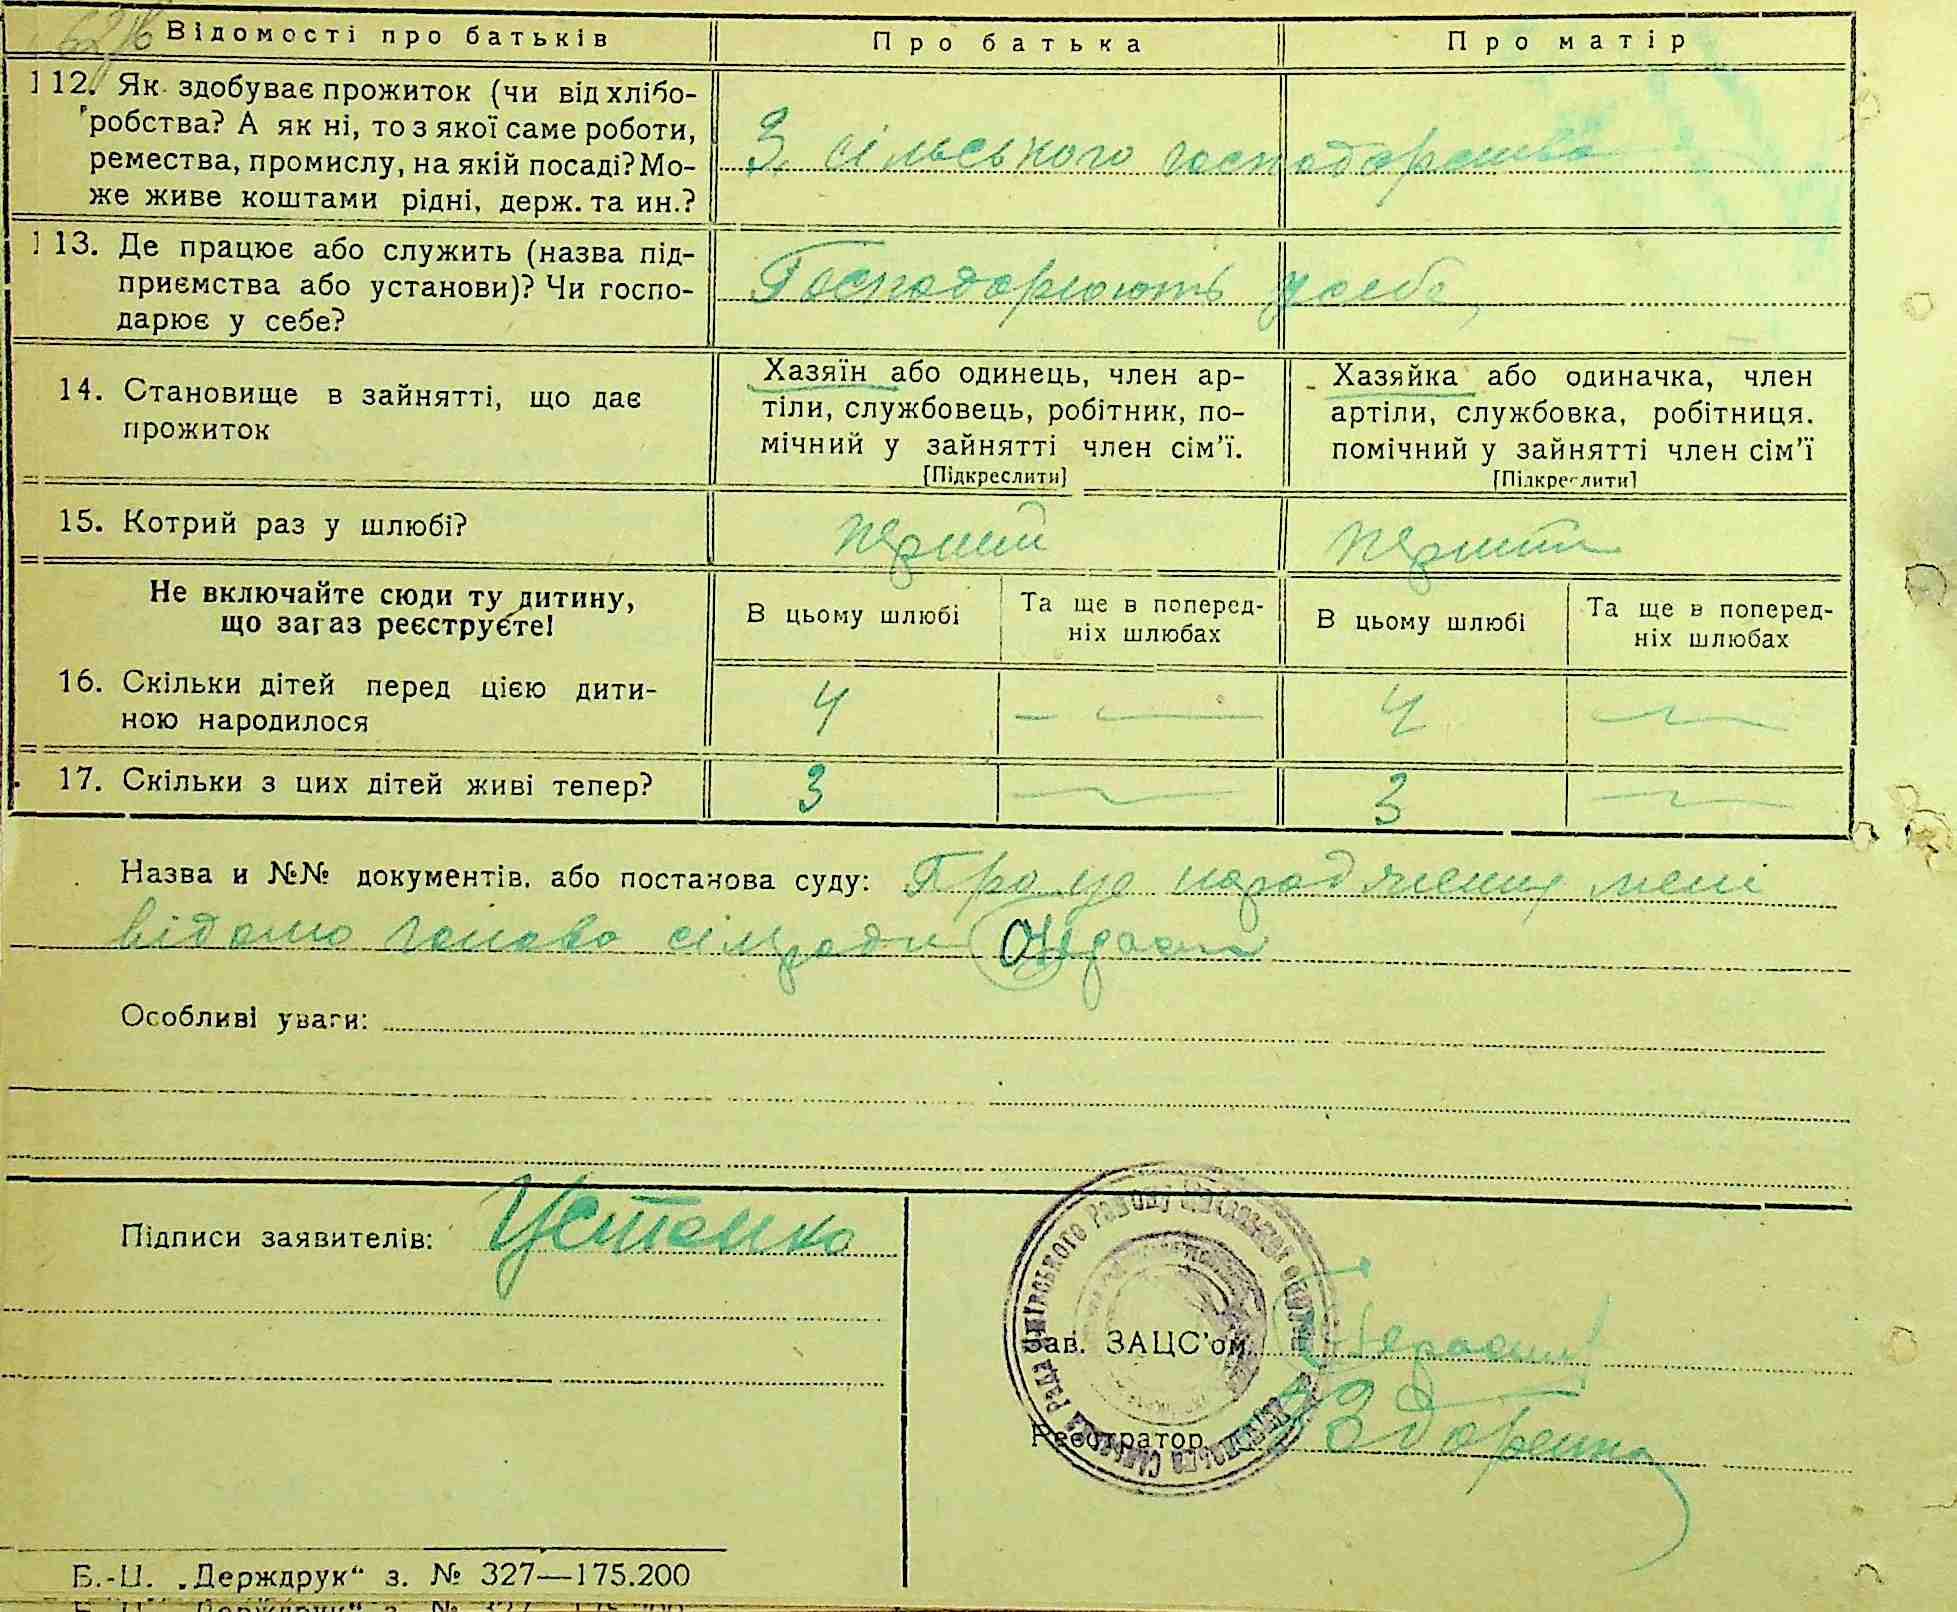 Відомості про батьків
Про батька
Про матір
12. Як здобуває прожиток (чи від хлібо-
робства? А як ні, то з якої саме роботи,
ремества, промислу, на якій посаді? Мо-
же живе коштами рідні, держ. та ин.?
З сільського господарства
13. Де працює або служить (назва під-
приємства або установи)? Чи госпо-
дарює у себе?
Господарюють у себе
14. Становище в зайнятті, що дає
прожиток
Хазяїн або одинець, член ар-
тіли, службовець, робітник, по-
мічний у зайнятті член сім'ї.
[Підкреслити]
Хазяйка або одиначка, член
артіли, службовка, робітниця.
помічний у зайнятті член сім'ї
[Підкреслити]
15. Котрий раз у шлюбі?
перший
перший
Не включайте сюди ту дитину,
що зараз реєструєте!
В цьому шлюбі
Та ще в поперед-
ніх шлюбах
В цьому шлюбі
Та ще в поперед-
ніх шлюбах
16. Скільки дітей перед цією дити-
ною народилося
4 — 4 —
17. Скільки з цих дітей живі тепер?
3 — 3 —
Назва и №№ документів, або постанова суду: Про це народження мені
відомо голова сільради
Особливі уваги:
Підписи заявителів: Устенко
Зав. ЗАЦС'ом
Реєстратор
Б.-Ц. „Держдрук“ з. № 327—175.200